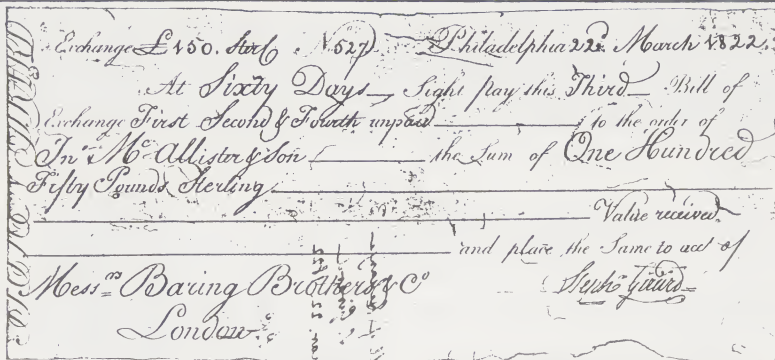 Exchange £150. Ster( N 527) Philadelphia 22d. March 1822.
At Sixty Days Sight pay this Third Bill of
Exchange First Second & Fourth unpaid to the order of
Jno Mc Allister & Son the Sum of One Hundred
Fifty Pounds Sterling
Value received
and place the Same to acct of
Messrs Baring Brothers & Co Steph Girard
London